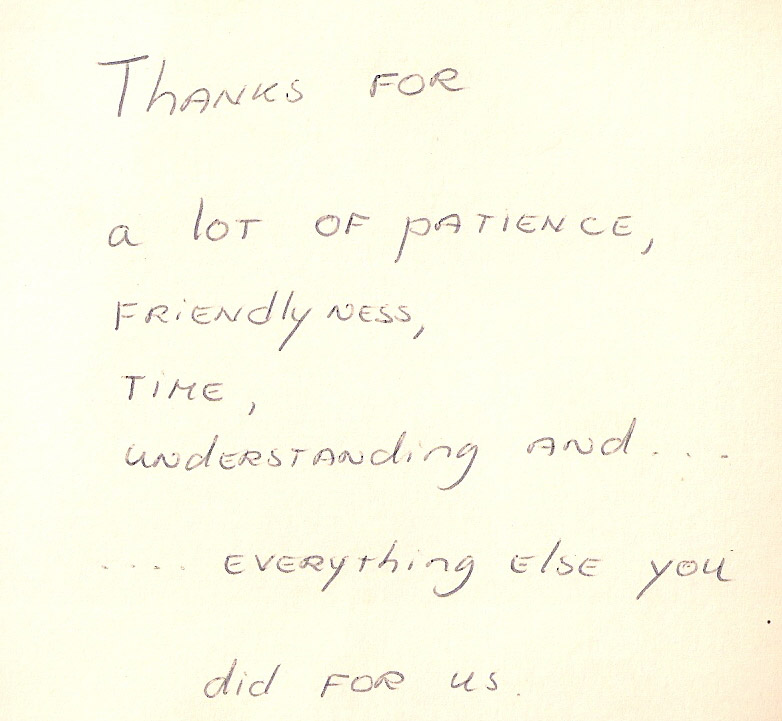 Thanks for
a lot of patience,
friendlyness,
time,
understanding and....
.... everything else you
did for us.